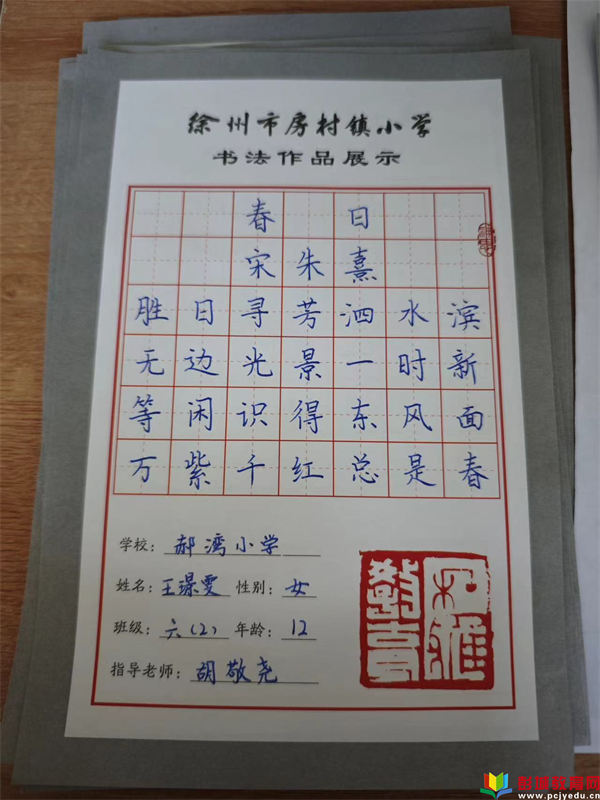 徐州市房村镇小学
书法作品展示
春日
宋朱熹
胜日寻芳泗水滨
无边光景一时新
等闲识得东风面
万紫千红总是春
学校：郝湾小学
姓名：王璟雯 性别：女
班级：六（2） 年龄：12
指导老师：胡敬尧
www.pcjyedu.cn